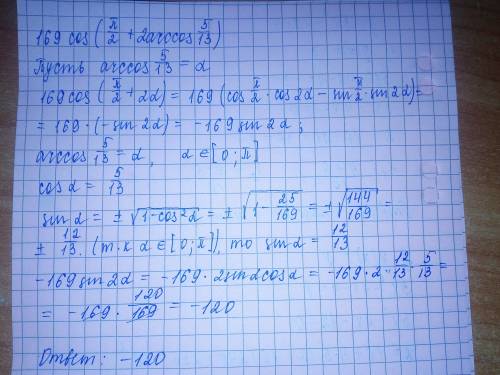 169 cos(π/2 + 2arccos 5/13)
Пусть arccos 5/13 = α
169 cos(π/2 + 2α) = 169 (cos π/2 · cos2α − sin π/2 · sin2α) =
= 169 · (−sin 2α) = −169 sin 2α ;
arccos 5/13 = α, α ∈ [0 ; π]
cos α = 5/13
sin α = ± √(1−cos²α) = ± √(1 − 25/169) = ± √(144/169) =
± 12/13. (т.к α ∈ [0 ; π]), то sin α = 12/13.
−169 sin 2α = −169 · 2 sin α cos α = −169 · 2 · 12/13 · 5/13 =
= −169 · 120/169 = −120
Ответ: −120